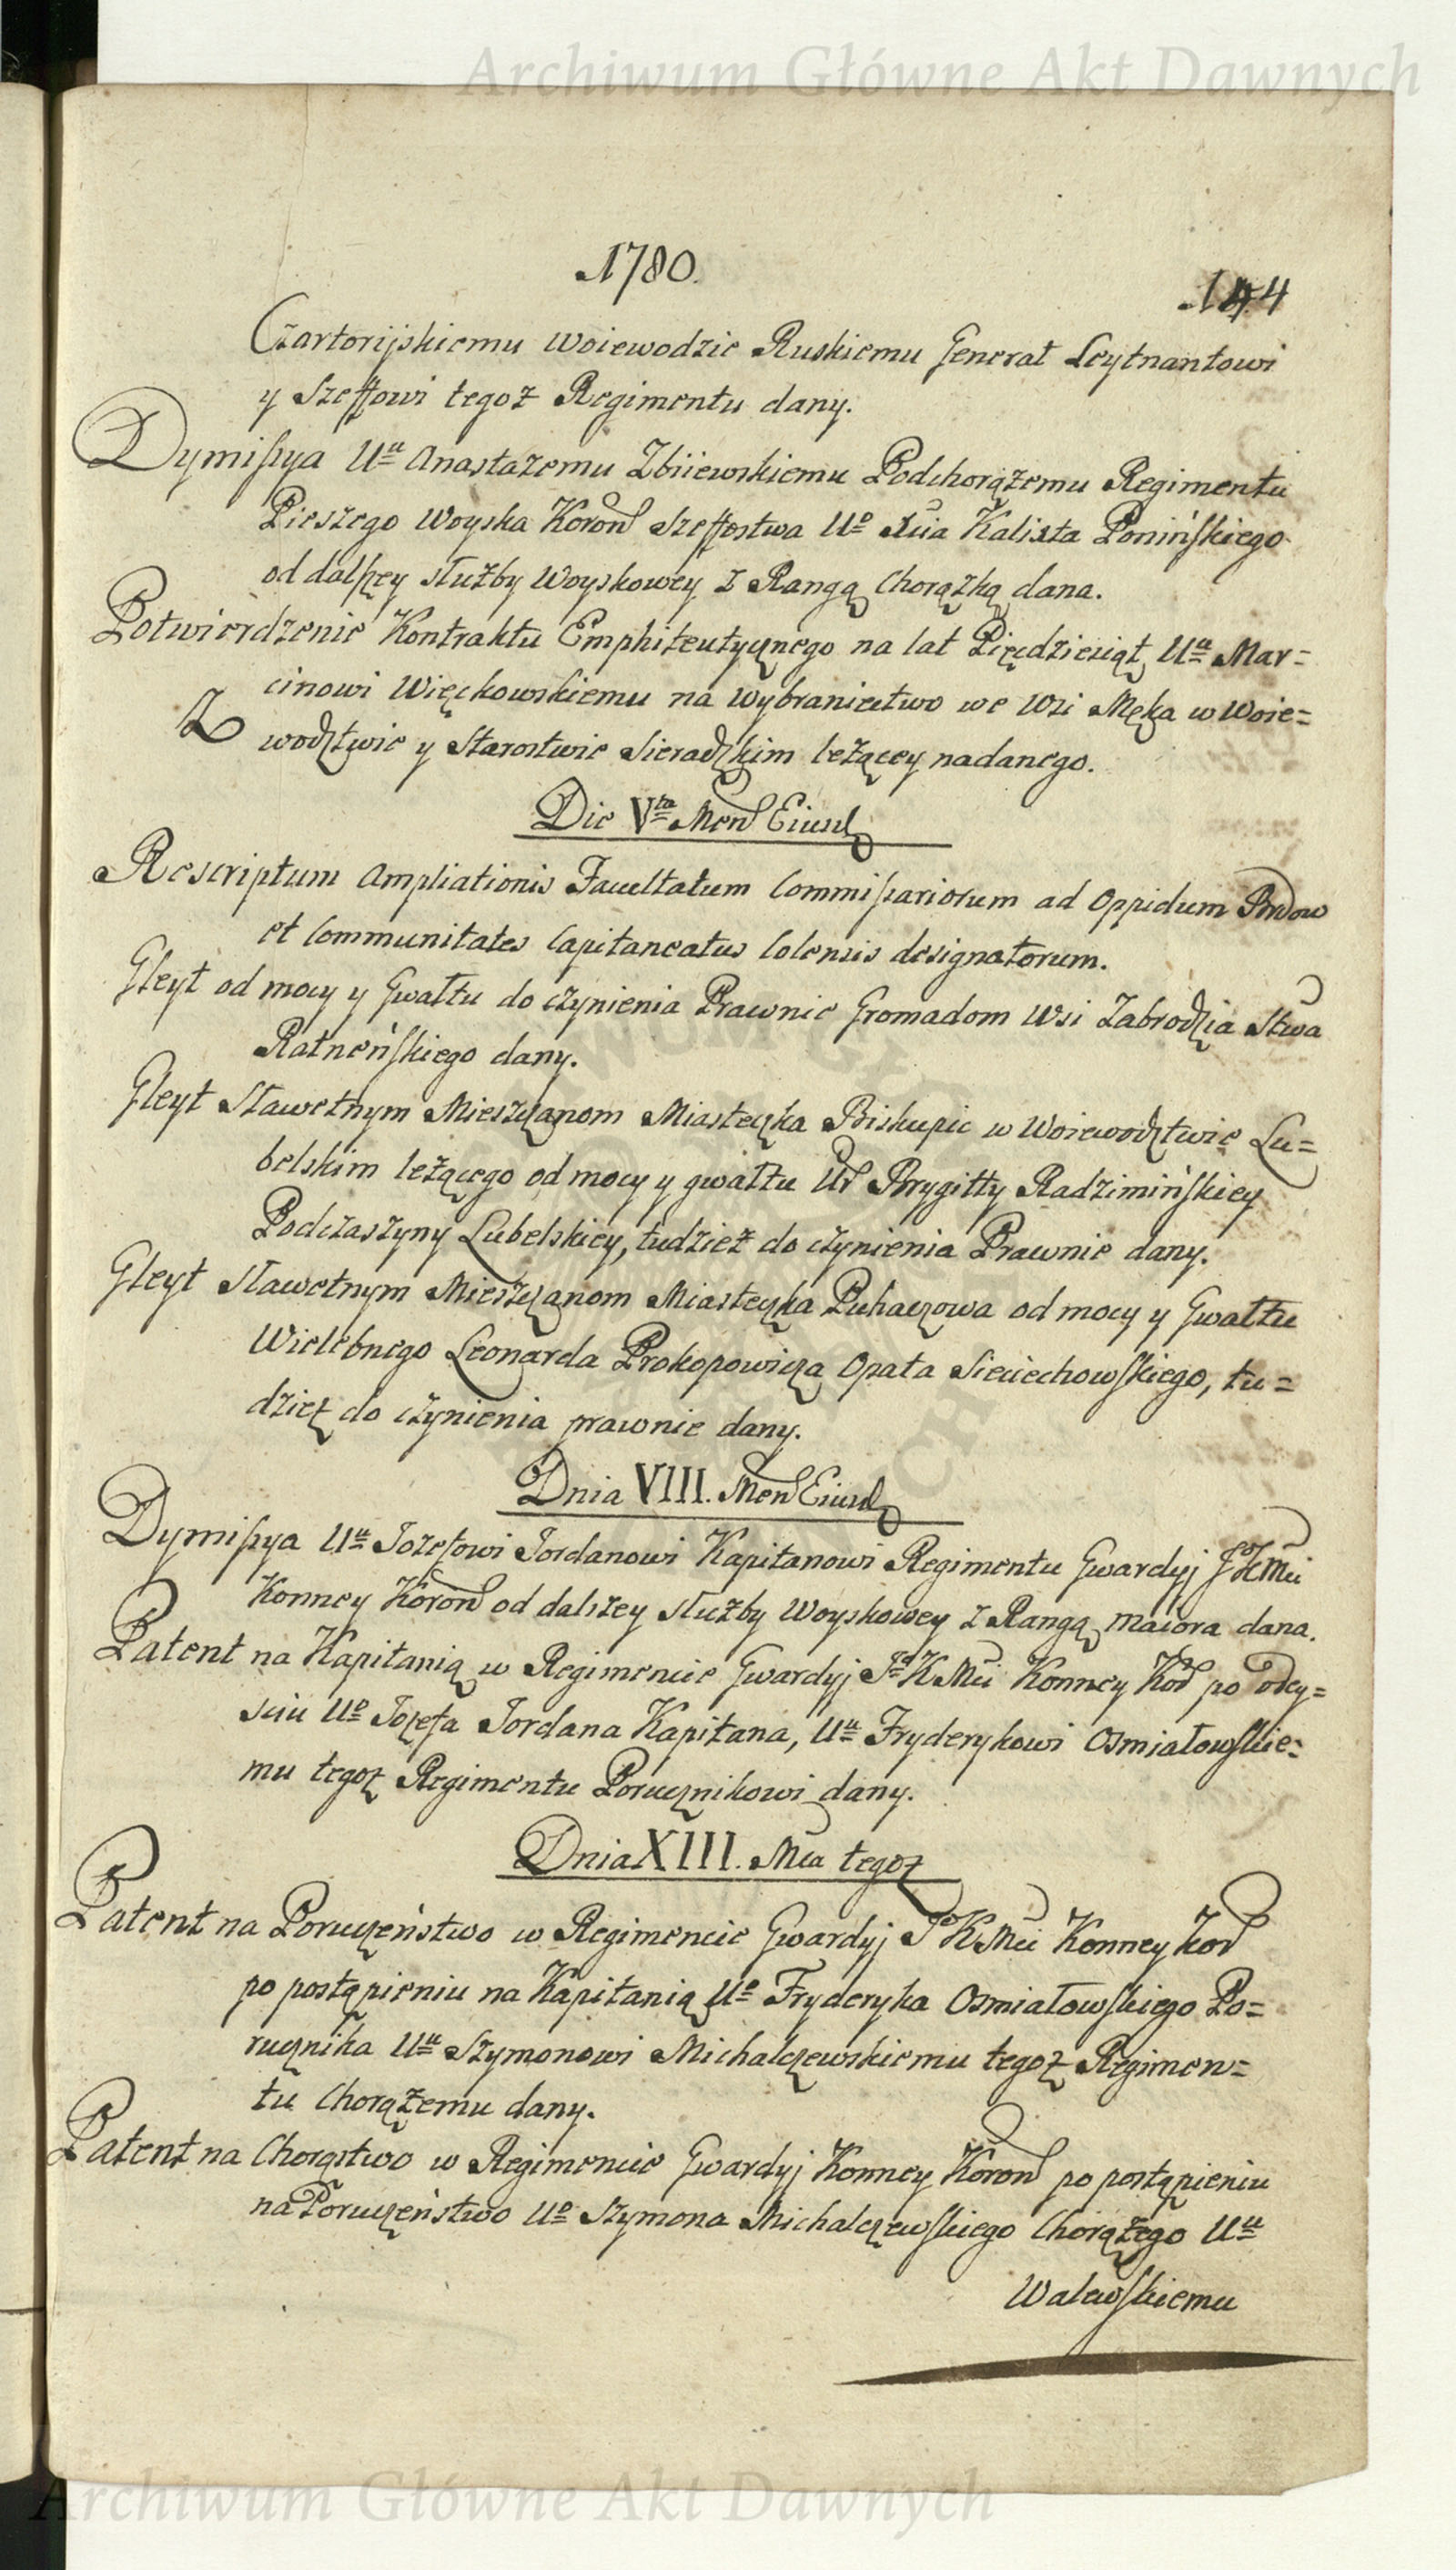 Archiwum Główne Akt Dawnych
1780.
144
Czartorijskiemu Woiewodzie Ruskiemu Generał Leytnantowi
y Szeffowi tegoż Regimentu dany.
Dymissya Uu Anastazemu Zbiiewskiemu Podchorążemu Regimentu
Pieszego Woyska Koron Szeffostwa Uo Xcia Kalixta Ponińskiego
od dalszey służby Woyskowey z Rangą Chorążką dana.
Potwierdzenie Kontraktu Emphiteutycznego na lat Pięćdziesiąt Uu Mar=
cinowi Więckowskiemu na Wybraniectwo we Wsi Męka w Woie=
wodztwie y Starostwie Sieradzkim leżącey nadanego.
Die Vta Men Eiusd
Rescriptum Ampliationis Facultatum Commissariorum ad Oppidum Brdow
et Communitates Capitaneatus Colensis designatorum.
Gleyt od mocy y Gwałtu do czynienia Prawnie Gromadom Wsi Zabrodzia Stwa
Ratneńskiego dany.
Gleyt Sławetnym Mieszczanom Miasteczka Biskupic w Woiewodztwie Lu=
belskim leżącego od mocy y gwałtu Ur Brygitty Radzimińskiey
Podczaszyny Lubelskiey, tudzież do czynienia Prawnie dany.
Gleyt Sławetnym Mieszczanom Miasteczka Puhaczowa od mocy y Gwałtu
Wielebnego Leonarda Prokopowicza Opata Sieciechowskiego, tu=
dzież do czynienia prawnie dany.
Dnia VIII. Men Eiusd
Dymissya Uu Jozefowi Jordanowi Kapitanowi Regimentu Gwardyj JKMci
Konney Koron od dalszey służby Woyskowey z Rangą Maiora dana.
Patent na Kapitanią w Regimencie Gwardyj Jo KMci Konney Kor po odey=
sciu Uo Jozefa Jordana Kapitana, Uu Fryderykowi Osmiałowskie=
mu tegoż Regimentu Porucznikowi dany.
Dnia XIII. Mca tegoż
Patent na Poruczeństwo w Regimencie Gwardyj JKMci Konney Kor
po postąpieniu na Kapitanią Uo Fryderyka Osmiałowskiego Po=
rucznika Uu Szymonowi Michalczewskiemu tegoż Regimen=
tu Chorążemu dany.
Patent na Chorąstwo w Regimencie Gwardyj Konney Koron po postąpieniu
na Poruczeństwo Uo Szymona Michalczewskiego Chorążego Uu
Walewskiemu
Archiwum Główne Akt Dawnych